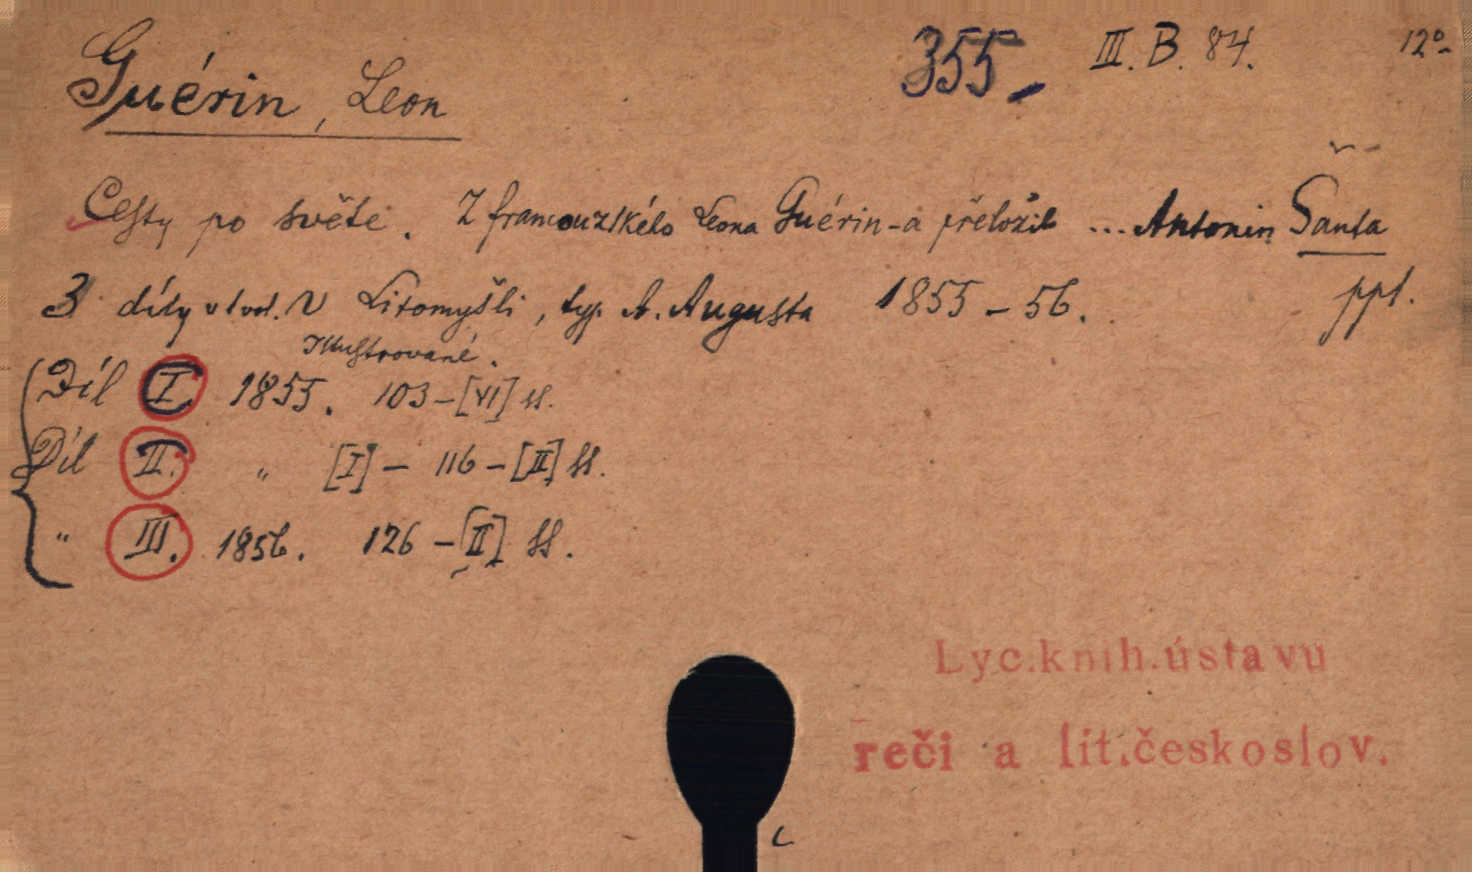 Guérin, Leon 355 III. B. 84. 12°
Cesty po světe. Z francouzského Leona Guérin-a přeložil ... Antonin Šanta
3 díly v 1 vol. V Litomyšli, typ. A. Augusta 1855-56. ppl.
Illustrované.
Díl I. 1855. 103-[VI] ss.
Díl II. " [I]- 116-[II] ss.
" III. 1856. 126-[II] ss.
Lyc.knih.ústavu
reči a lit.českoslov.